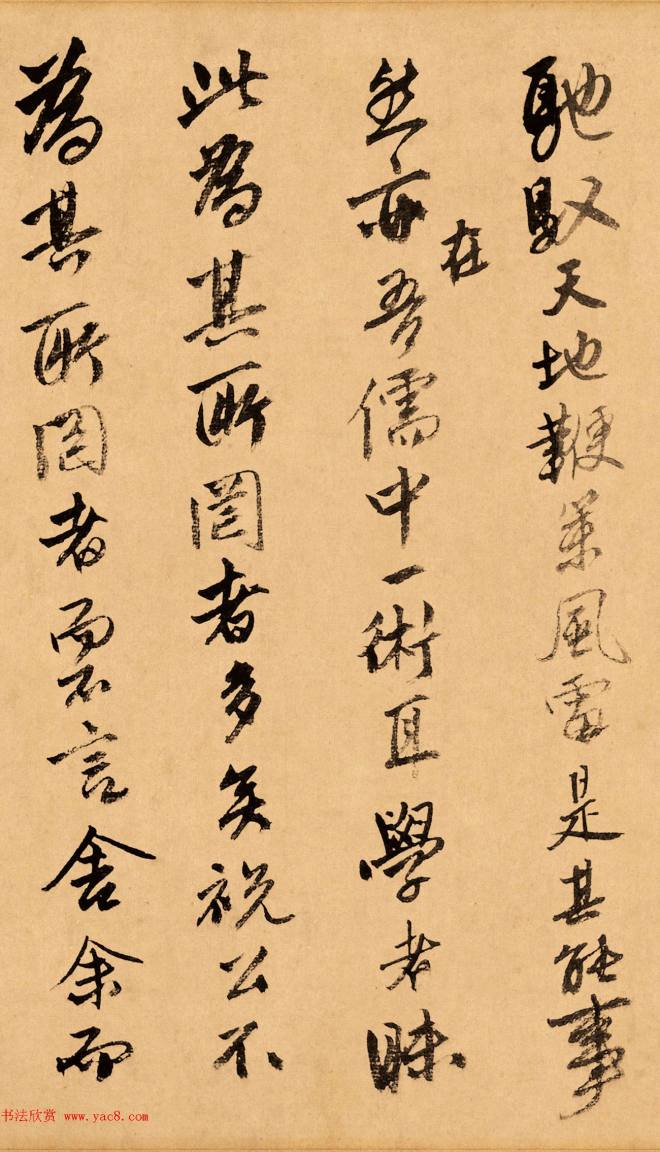 馳馭天地鞭策風雷是其能事
然亦在吾儒中一術耳學者昧
此為其所罔者多矣祝公不
為其所罔者而不言舍余而
书法欣赏 www.yac8.com